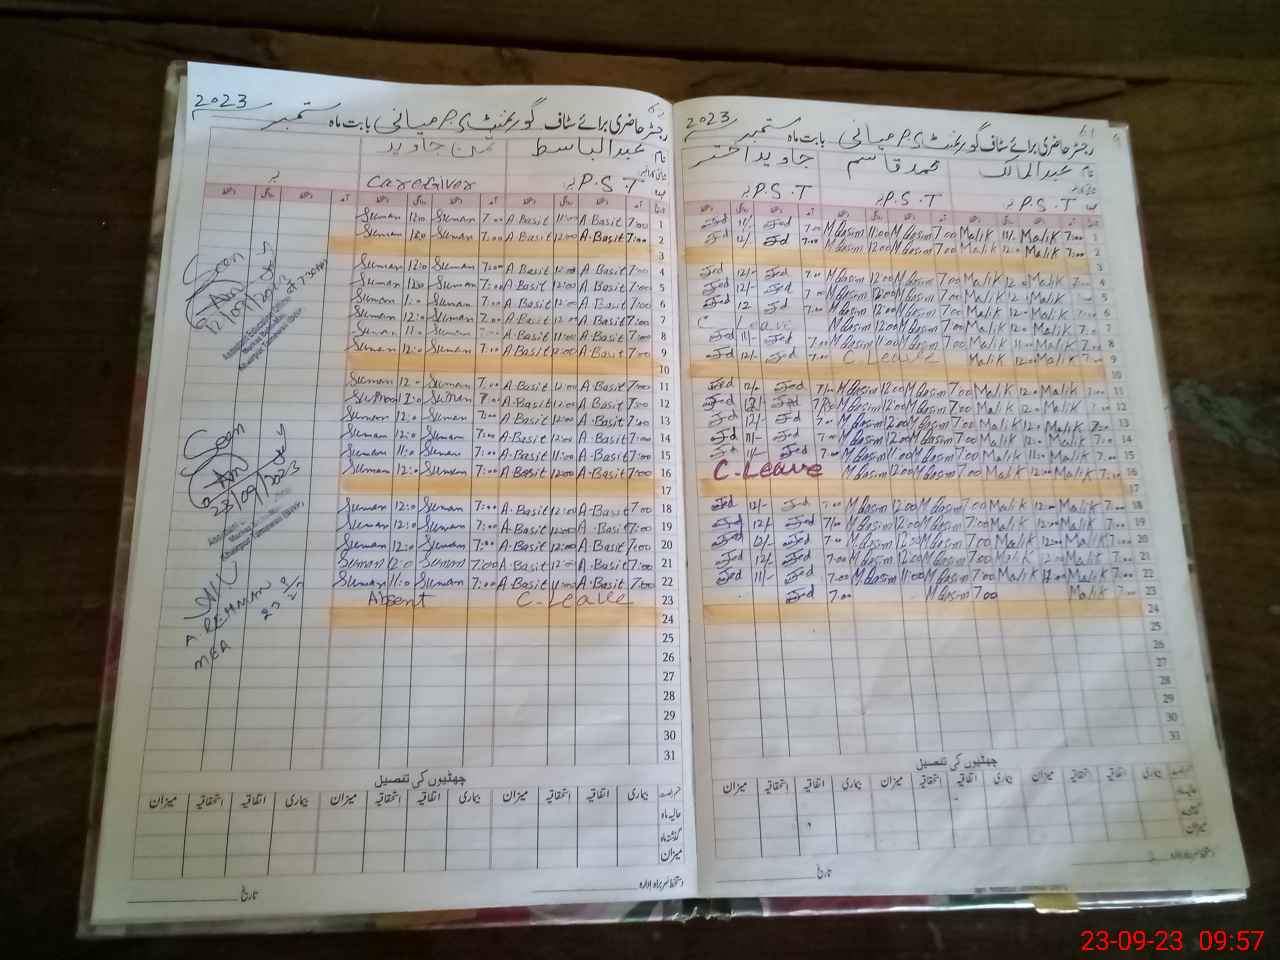 2023
رجسٹر حاضری برائے سٹاف گورنمنٹ میانی بابت ماہ ستمبر
نام عبدالمالک محمد قاسم جاوید اختر
P.S.T P.S.T P.S.T
1 7:00 Malik 11/- Malik 7:00 M Qasim 11:00 M Qasim 7:00 Jed 11/- Jed
2 7:00 Malik 12:0 Malik 7:00 M Qasim 12:00 M Qasim 7:00 Jed 12/- Jed
3
4 7:00 Malik 12:0 Malik 7:00 M Qasim 12:00 M Qasim 7:00 Jed 12/- Jed
5 7:00 Malik 12:0 Malik 7:00 M Qasim 12:00 M Qasim 7:00 Jed 12/- Jed
6 7:00 Malik 12:0 Malik 7:00 M Qasim 12:00 M Qasim 7:00 Jed 12 Jed
7 7:00 Malik 12:0 Malik 7:00 M Qasim 12:00 M Qasim C Leave
8 7:00 Malik 11:00 Malik 7:00 M Qasim 11:00 M Qasim 7:00 Jed 11/- Jed
9 7:00 Malik 12:00 Malik C. Leave 7:00 Jed 12/- Jed
10
11 7:00 Malik 12:0 Malik 7:00 M Qasim 12:00 M Qasim 7/00 Jed 12/- Jed
12 7:00 Malik 12:0 Malik 7:00 M Qasim 12:00 M Qasim 7/00 Jed 12/- Jed
13 7:00 Malik 12:0 Malik 7:00 M Qasim 12:00 M Qasim 7:00 Jed 12/- Jed
14 7:00 Malik 12:0 Malik 7:00 M Qasim 12:00 M Qasim 7:00 Jed 11/- Jed
15 7:00 Malik 11:00 Malik 7:00 M Qasim 11:00 M Qasim 7:00 Jed 11/- Jed
16 7:00 Malik 12:00 Malik 7:00 M Qasim 12:00 M Qasim C. Leave
17
18 7:00 Malik 12:00 Malik 7:00 M Qasim 12:00 M Qasim 7:00 Jed 12/- Jed
19 7:00 Malik 12:00 Malik 7:00 M Qasim 12:00 M Qasim 7/00 Jed 12/- Jed
20 7:00 Malik 12:00 Malik 7:00 M Qasim 12:00 M Qasim 7:00 Jed 12/- Jed
21 7:00 Malik 12:00 Malik 7:00 M Qasim 12:00 M Qasim 7:00 Jed 12/- Jed
22 7:00 Malik 12:00 Malik 7:00 M Qasim 11:00 M Qasim 7:00 Jed 11/- Jed
23 7:00 Malik 7:00 M Qasim 7:00 Jed
24
25
26
27
28
29
30
31
چھٹیوں کی تفصیل
بیماری اتفاقیہ استحقاقیہ میزان بیماری اتفاقیہ استحقاقیہ میزان بیماری اتفاقیہ استحقاقیہ میزان
میزان
دستخط سربراہ ادارہ تاریخ
2023
رجسٹر حاضری برائے سٹاف گورنمنٹ میانی بابت ماہ ستمبر
نام عبدالباسط ثمن جاوید
P.S.T Caregiver
1 7:00 A Basit 11:00 A Basit 7:00 Suman 12:0 Suman
2 7:00 A Basit 12:00 A Basit 7:00 Suman 12:0 Suman
3
4 7:00 A Basit 12:00 A Basit 7:00 Suman 12:0 Suman
5 7:00 A Basit 12:00 A Basit 7:00 Suman 12:0 Suman
6 7:00 A Basit 12:00 A Basit 7:00 Suman 1:0 Suman
7 7:00 A Basit 12:00 A Basit 7:00 Suman 12:0 Suman
8 7:00 A Basit 11:00 A Basit 7:00 Suman 11:0 Suman
9 7:00 A Basit 12:00 A Basit 7:00 Suman 12:0 Suman
10
11 7:00 A.Basit 12:00 A.Basit 7:00 Suman 12:0 Suman
12 7:00 A.Basit 12:00 A.Basit 7:00 Suman 12:0 Suman
13 7:00 A.Basit 12:00 A.Basit 7:00 Suman 12:0 Suman
14 7:00 A.Basit 12:00 A.Basit 7:00 Suman 12:0 Suman
15 7:00 A.Basit 11:00 A.Basit 7:00 Suman 11:0 Suman
16 7:00 A.Basit 12:00 A.Basit 7:00 Suman 12:0 Suman
17
18 7:00 A.Basit 12:00 A.Basit 7:00 Suman 12:0 Suman
19 7:00 A.Basit 12:00 A.Basit 7:00 Suman 12:0 Suman
20 7:00 A.Basit 12:00 A.Basit 7:00 Suman 12:0 Suman
21 7:00 A.Basit 12:00 A.Basit 7:00 Suman 12:0 Suman
22 7:00 A.Basit 11:00 A.Basit 7:00 Suman 11:0 Suman
23 C. Leave Absent
24
25
26
27
28
29
30
31
چھٹیوں کی تفصیل
بیماری اتفاقیہ استحقاقیہ میزان بیماری اتفاقیہ استحقاقیہ میزان بیماری اتفاقیہ استحقاقیہ میزان
حالیہ ماہ
گذشتہ ماہ
میزان
دستخط سربراہ ادارہ تاریخ
Seen
12/09/2023
at 7:30 AM
Seen
23/09/2023
A. REHMAN
MEA
23-09-23 09:57